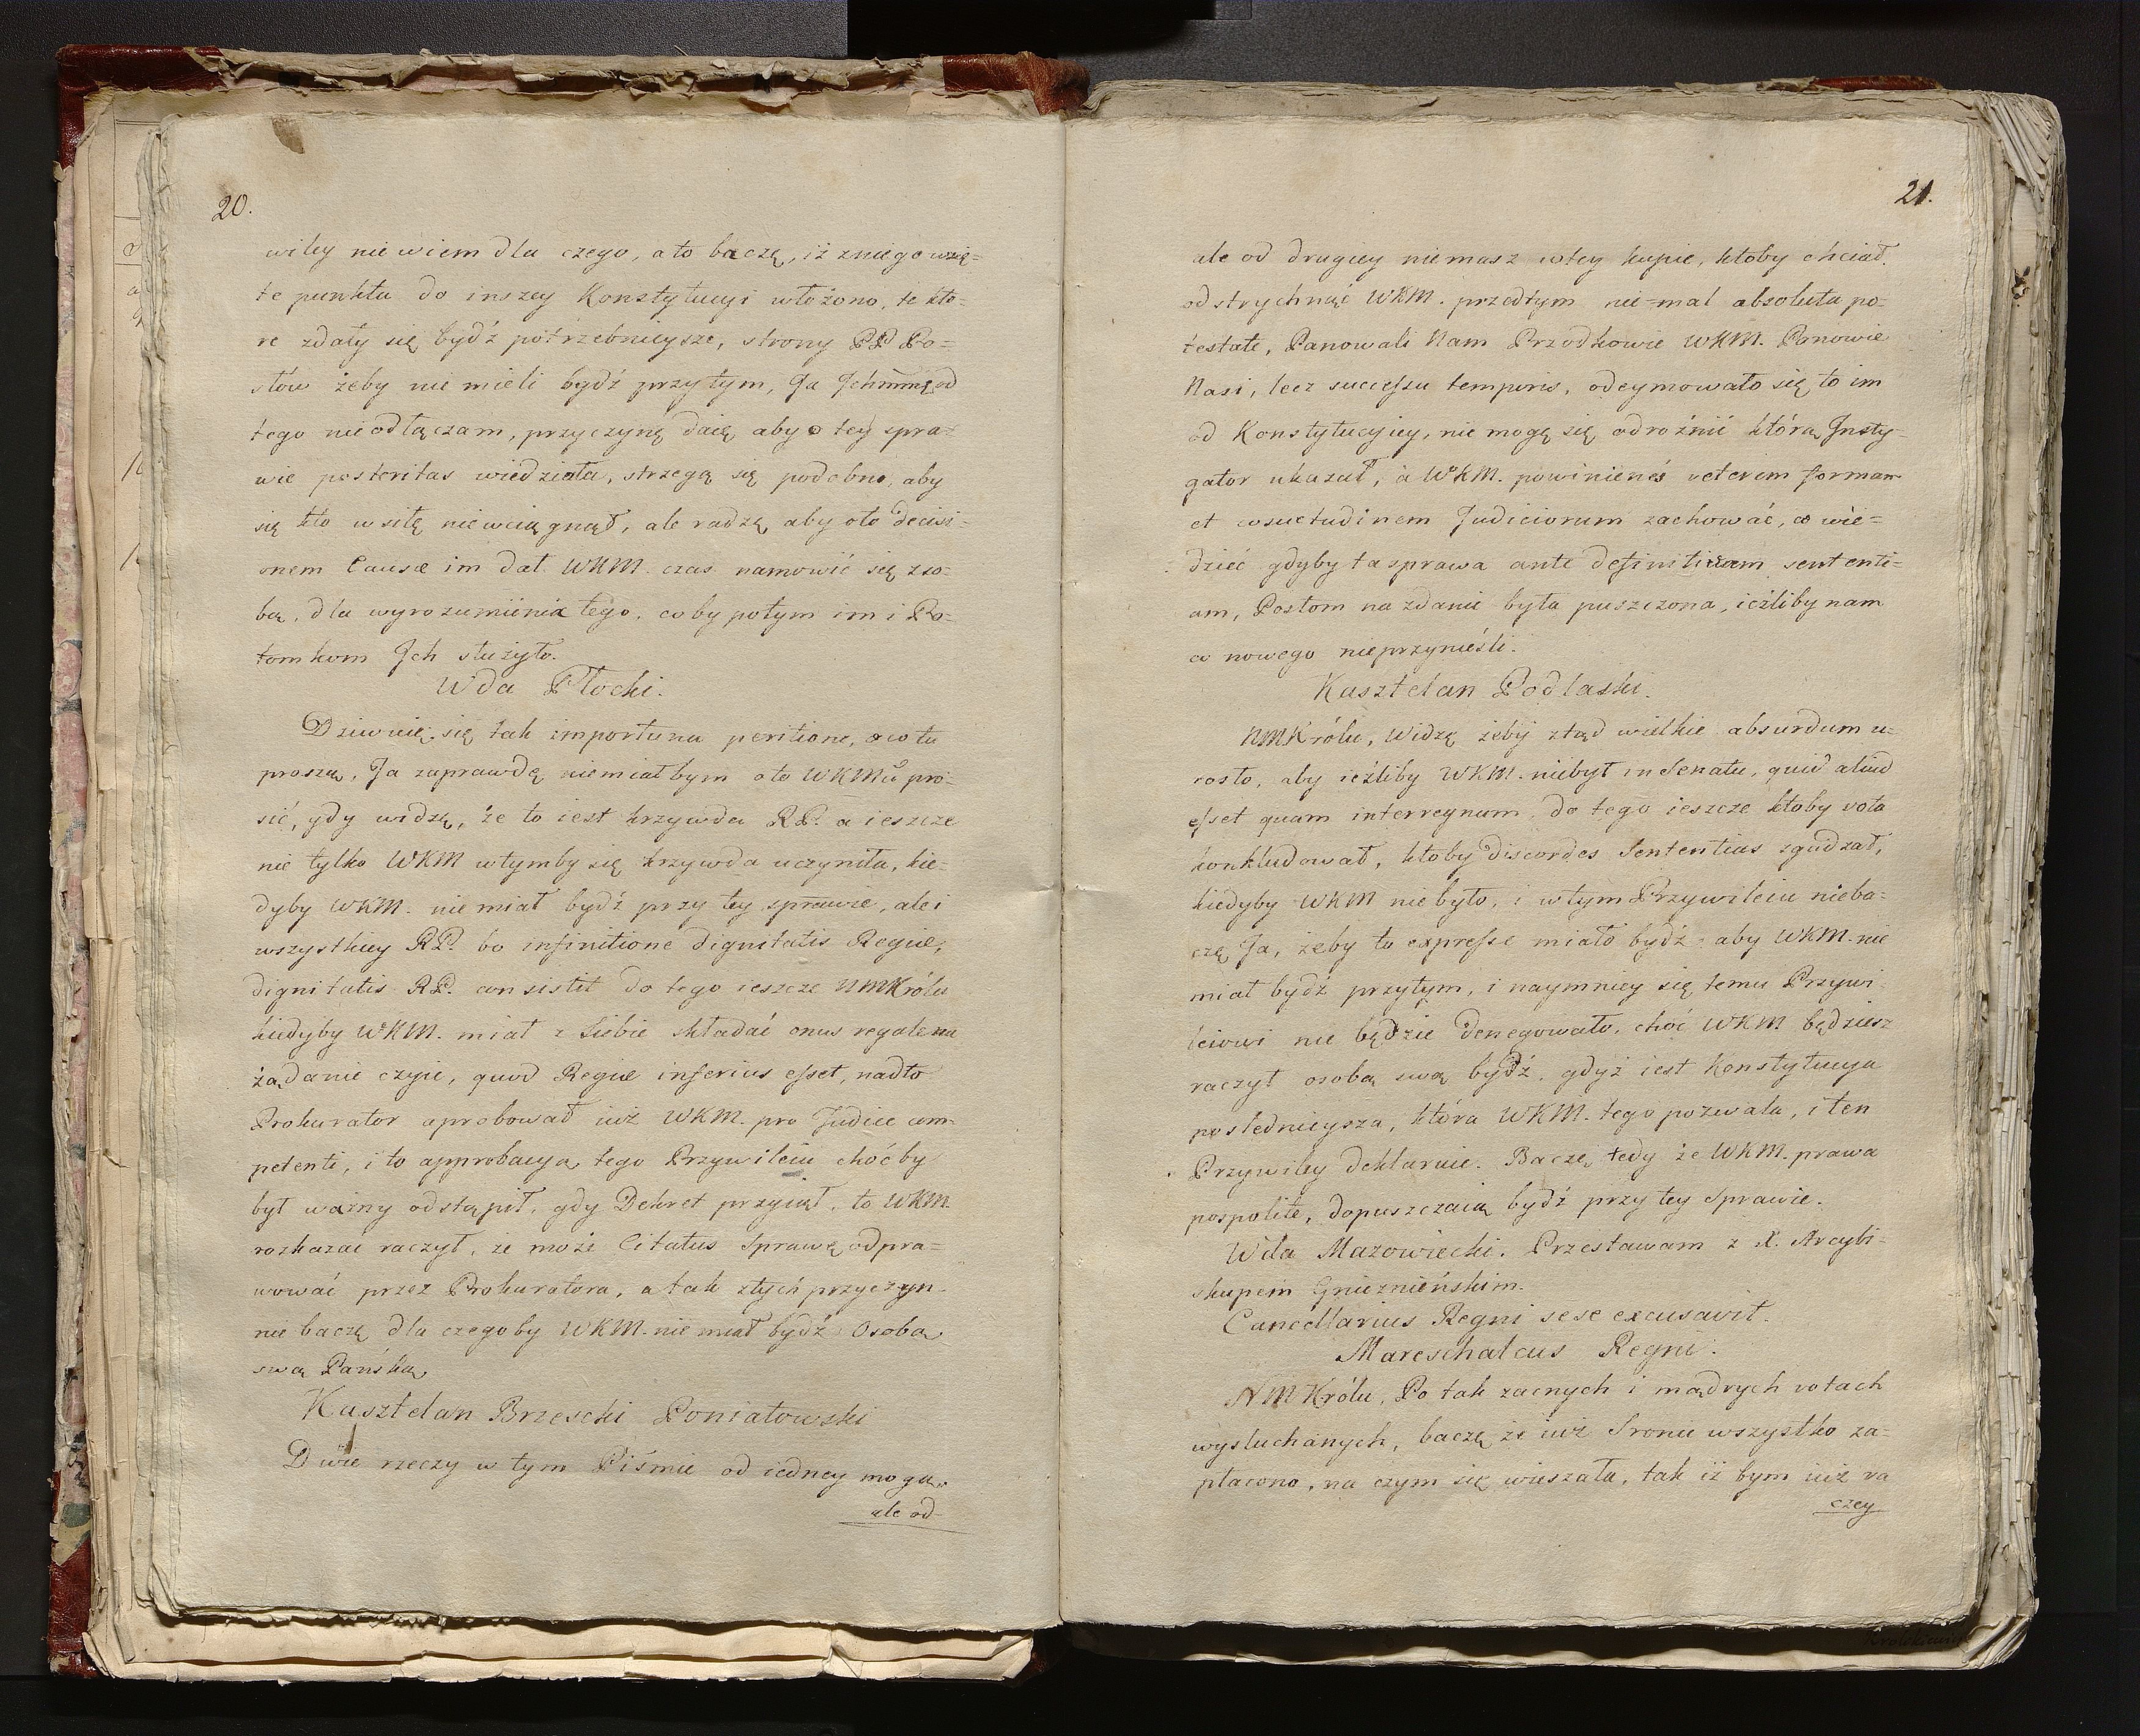 20.
wiley nie wiem dla czego, a to baczę, iż z niego wzię=
te punkta do inszey Konstytucyi włożono, te kto=
re zdały się bydź potrzebnieysze, strony PP Po=
słów żeby nie mieli bydź przytym, Ja Ichmm̃ę od
tego nieodłączam, przyczynę daię aby o tey spra=
wie posteritas wiedziała, strzegą się podobno, aby
się kto w siłę nie wciągnął, ale radzę aby oto decisi=
onem Causæ im dał WKM. czas namowić się z so=
bą, dla wyrozumienia tego, coby potym im i Po=
tomkom Ich służyło.
Wda Płocki.
Dziwuię się tak importuna peritione, o co tu
proszą, Ja zaprawdę niemiałbym o to WKMci pro=
sić, gdy widzę, że to iest krzywda RP. a ieszcze
nie tylko WKM w tymby się krzywda uczyniła, kie=
dyby WKM. nie miał bydź przy tey sprawie, ale i
wszystkiey RP. bo infinitione dignitatis Regiæ,
dignitatis RP. consistit do tego ieszcze NMKrólu
kiedyby WKM. miał z Siebie składać onus regale na
żądanie czyie, quod Regiæ inferius esset, nadto
Prokurator aprobował iuż WKM. pro Judice com=
petenti, i to approbacyą tego Przywileiu choćby
był ważny odstąpił, gdy Dekret przyiął, to WKM.
rozkazać raczył, że może Citatus Sprawę odpra=
wować przez Prokuratora, a tak z tych przyczyn
nie baczę dla czegoby WKM. nie miał bydź Osobą
swą Pańską
Kasztelan Brzeski Poniatowski
Dwie rzeczy w tym Piśmie od iedney mogą,
ale od
21.
ale od drugiey niemasz w tey kupie, ktoby chciał
odstrychnąć WKM. przedtym nie=mal absoluta po=
testate, Panowali Nam Przodkowie WKM. Panowie
Nasi, lecz successu temporis, odeymowało się to im
od Konstytucyiey, nie mogę się odrożnić którą Insty=
gator ukazał, a WKM. powinieneś veterem formam
et consuetudinem Judiciorum zachować, co wie=
dzieć gdyby ta sprawa ante definitivam sententi=
am, Posłom na zdanie była puszczona, ieżliby nam
co nowego nieprzynieśli.
Kasztelan Podlaski.
NMKrólu, Widzę żeby ztąd wielkie absurdum u=
rosło, aby ieżliby WKM. niebył in Senatu, quid aliud
esset quam interregnum, do tego ieszcze ktoby vota
konkludował, ktoby discordes Sententias zgadzał,
kiedyby WKM nie było, i w tym Przywileiu nieba=
czę Ja, żeby to expresse miało bydź aby WKM. nie
miał bydź przytym, i naymniey się temu Przywi=
leiowi nie będzie denegowało, choć WKM będziesz
raczył osobą swą bydź, gdyż iest Konstytucya
poslednieysza, która WKM. tego pozwala, i ten
Przywiley deklaruie. Baczę tedy że WKM. prawa
pospolite, dopuszczaią bydź przy tey Sprawie.
Wda Mazowiecki. Przestawam z X. Arcybi=
skupem Gnieznieńskim.
Cancellarius Regni sese excusavit.
Mareschalcus Regni.
NMKrólu, Po tak zacnych i mądrych votach
wysłuchanych, baczę że iuż Stronie wszystko za=
płacono, na czym się wieszała, tak iż bym iuż ra
czey